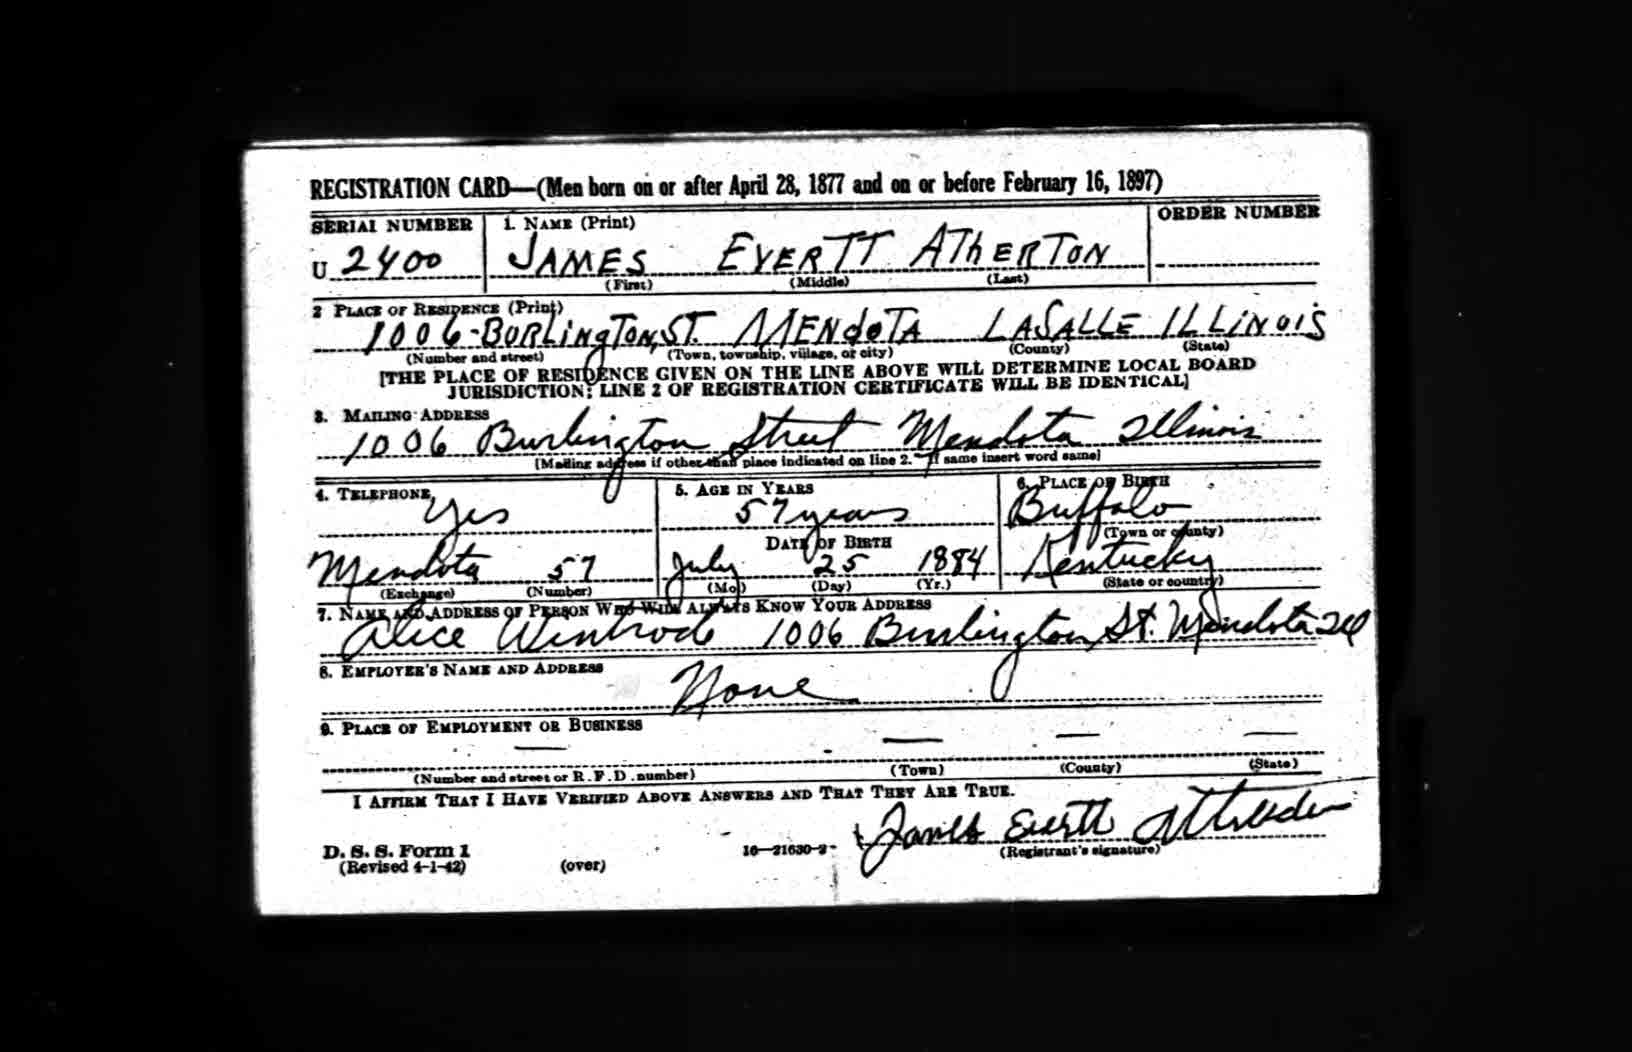 REGISTRATION CARD—(Men born on or after April 28, 1877 and on or before February 16, 1897)
SERIAL NUMBER 1. NAME (Print) ORDER NUMBER
U 2400 JAMES EVERTT ATHERTON
(First) (Middle) (Last)
2 PLACE OF RESIDENCE (Print)
1006-BURLINGTON, ST. MENDOTA LASALLE ILLINOIS
(Number and street) (Town, township, village, or city) (County) (State)
[THE PLACE OF RESIDENCE GIVEN ON THE LINE ABOVE WILL DETERMINE LOCAL BOARD
JURISDICTION; LINE 2 OF REGISTRATION CERTIFICATE WILL BE IDENTICAL]
3. MAILING ADDRESS
1006 Burlington Street Mendota Illinois
[Mailing address if other than place indicated on line 2. If same insert word same]
4. TELEPHONE 5. AGE IN YEARS 6. PLACE OF BIRTH
Yes 57 years Buffalo
DATE OF BIRTH (Town or county)
Mendota 57 July 25 1884 Kentucky
(Exchange) (Number) (Mo.) (Day) (Yr.) (State or country)
7. NAME AND ADDRESS OF PERSON WHO WILL ALWAYS KNOW YOUR ADDRESS
Alice Wintrode 1006 Burlington, St. Mendota Ill
8. EMPLOYER'S NAME AND ADDRESS
None
9. PLACE OF EMPLOYMENT OR BUSINESS
— — — —
(Number and street or R. F. D. number) (Town) (County) (State)
I AFFIRM THAT I HAVE VERIFIED ABOVE ANSWERS AND THAT THEY ARE TRUE.
James Evertt Atherton
D. S. S. Form 1 16—21630-2 (Registrant's signature)
(Revised 4-1-42) (over)